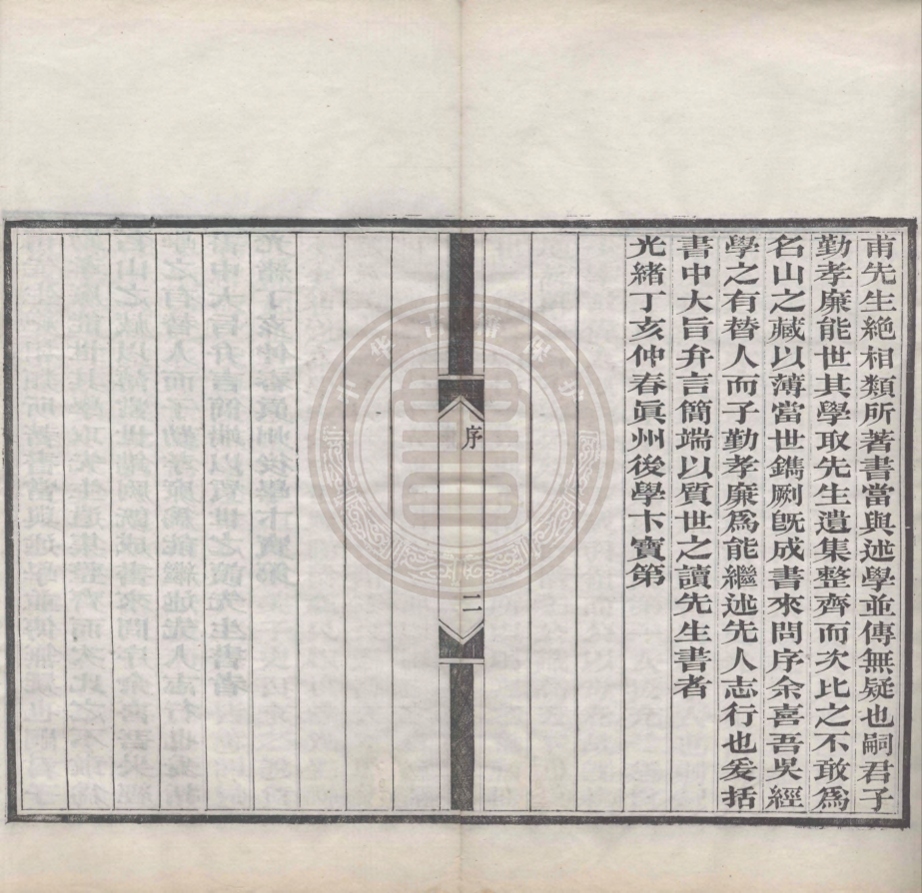 甫先生絕相類所著書當與述學並傳無疑也嗣君子
勤孝廉能世其學取先生遺集整齊而次比之不敢爲
名山之藏以薄當世鐫劂旣成書來問序余喜吾吳經
學之有替人而子勤孝廉爲能繼述先人志行也爰括
書中大旨弁言簡端以質世之讀先生書者
光緒丁亥仲春眞州後學卞寶第
序
二